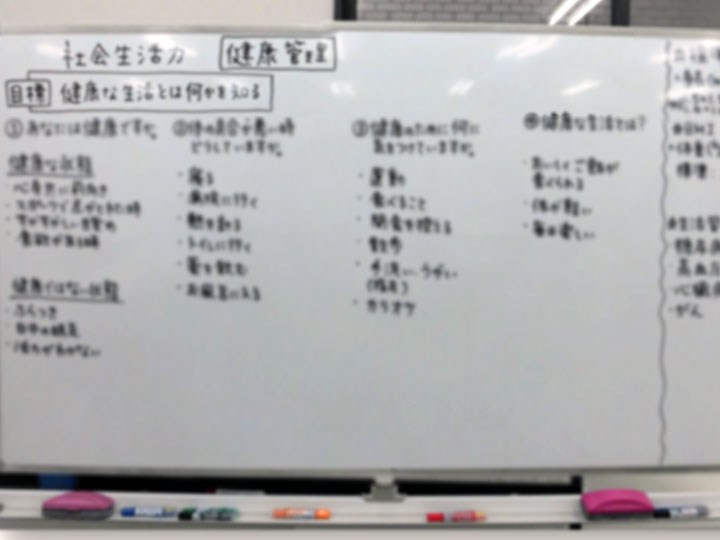 社会生活力 健康管理
目標 健康な生活とは何かを知る
①あなたは健康ですか。
健康な状態
・心身共に前向き
・スポーツで汗がでた時
・すがすがしい目覚め
・食欲がある時
健康ではない状態
・ふらつき
・日中の眠気
・活力がわかない
②体の具合が悪い時
どうしていますか。
・寝る
・病院に行く
・熱を測る
・トイレに行く
・薬を飲む
・お風呂に入る
③健康のために何に
気をつけていますか。
・運動
・食べること
・間食を控える
・散歩
・手洗い、うがい
・カラオケ
④健康な生活とは?
・おいしくご飯が
食べられる
・体が軽い
・毎日楽しい
・がん